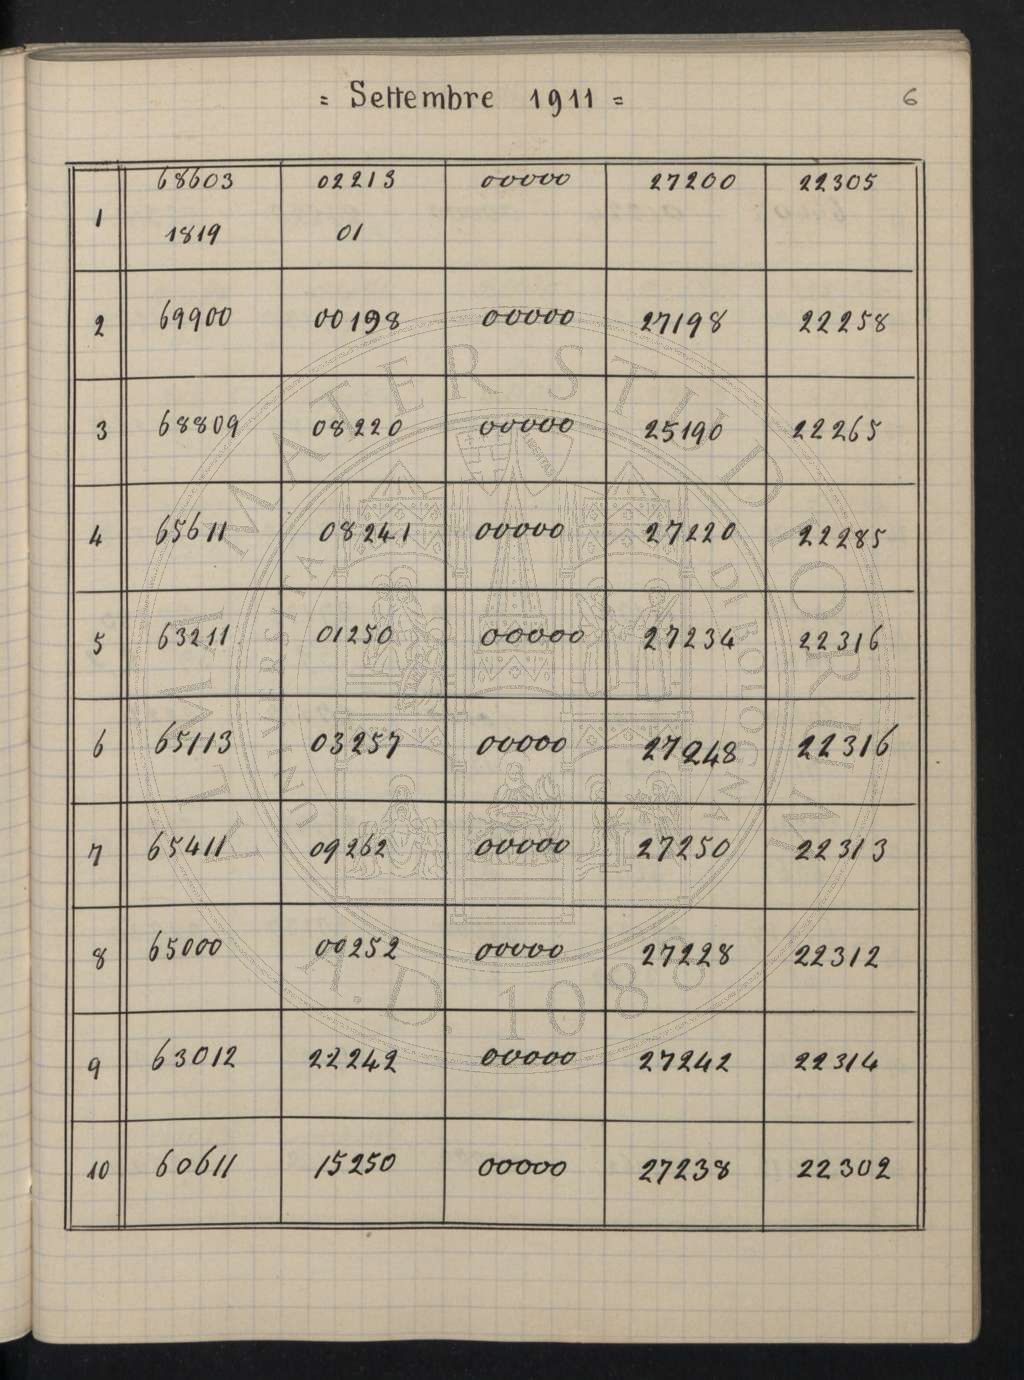 = Settembre 1911 =
6
1 68603 02213 00000 27200 22305
1819 01
2 69900 00198 00000 27198 22258
3 68809 08220 00000 25190 22265
4 65611 08241 00000 27220 22285
5 63211 01250 00000 27234 22316
6 65113 03257 00000 27248 22316
7 65411 09262 00000 27250 22313
8 65000 00252 00000 27228 22312
9 63012 22242 00000 27242 22314
10 60611 15250 00000 27238 22302
ALMA MATER STUDIORUM
A.D. 1088